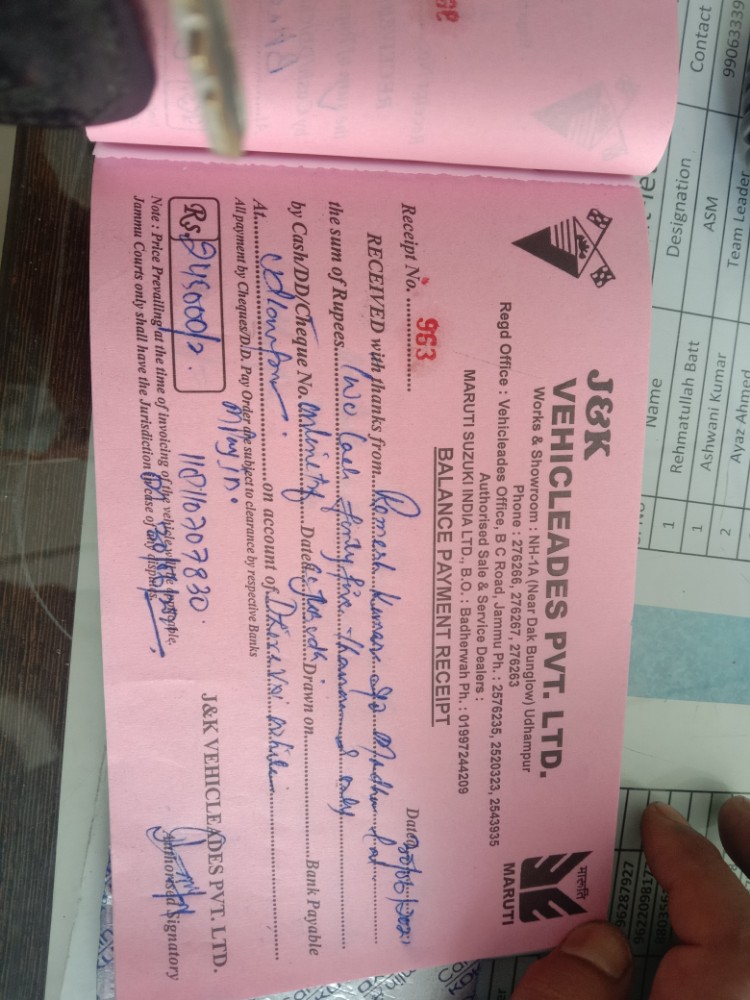 J&K
VEHICLEADES PVT. LTD.
Works & Showroom : NH-1A (Near Dak Bunglow) Udhampur
Phone : 276266, 276267, 276263
Regd Office : Vehicleades Office, B C Road, Jammu Ph. : 2576235, 2520323, 2543935
Authorised Sale & Service Dealers :
MARUTI SUZUKI INDIA LTD., B.O. : Badherwah Ph. : 01997244209
मारुति
MARUTI
BALANCE PAYMENT RECEIPT
Receipt No. 963 Date 30/06/2021
RECEIVED with thanks from Romesh Kumar s/o Madhu Lal
the sum of Rupees Two Lac forty five thousand only
by Cash/DD/Cheque No. online Date Drawn on Bank Payable
At Udhampur on account of
All payment by Cheques/D.D. Pay Order are subject to clearance by respective Banks
Rs. 245000/-
118110707830
Note : Price Prevailing at the time of invoicing of the vehicle will be applicable.
Jammu Courts only shall have the Jurisdiction in case of any disputes.
J&K VEHICLEADES PVT. LTD.
Authorised Signatory
Name Designation Contact
1 Rehmatullah Batt ASM 99063339
1 Ashwani Kumar Team Leader
2 Ayaz Ahmed
96287927